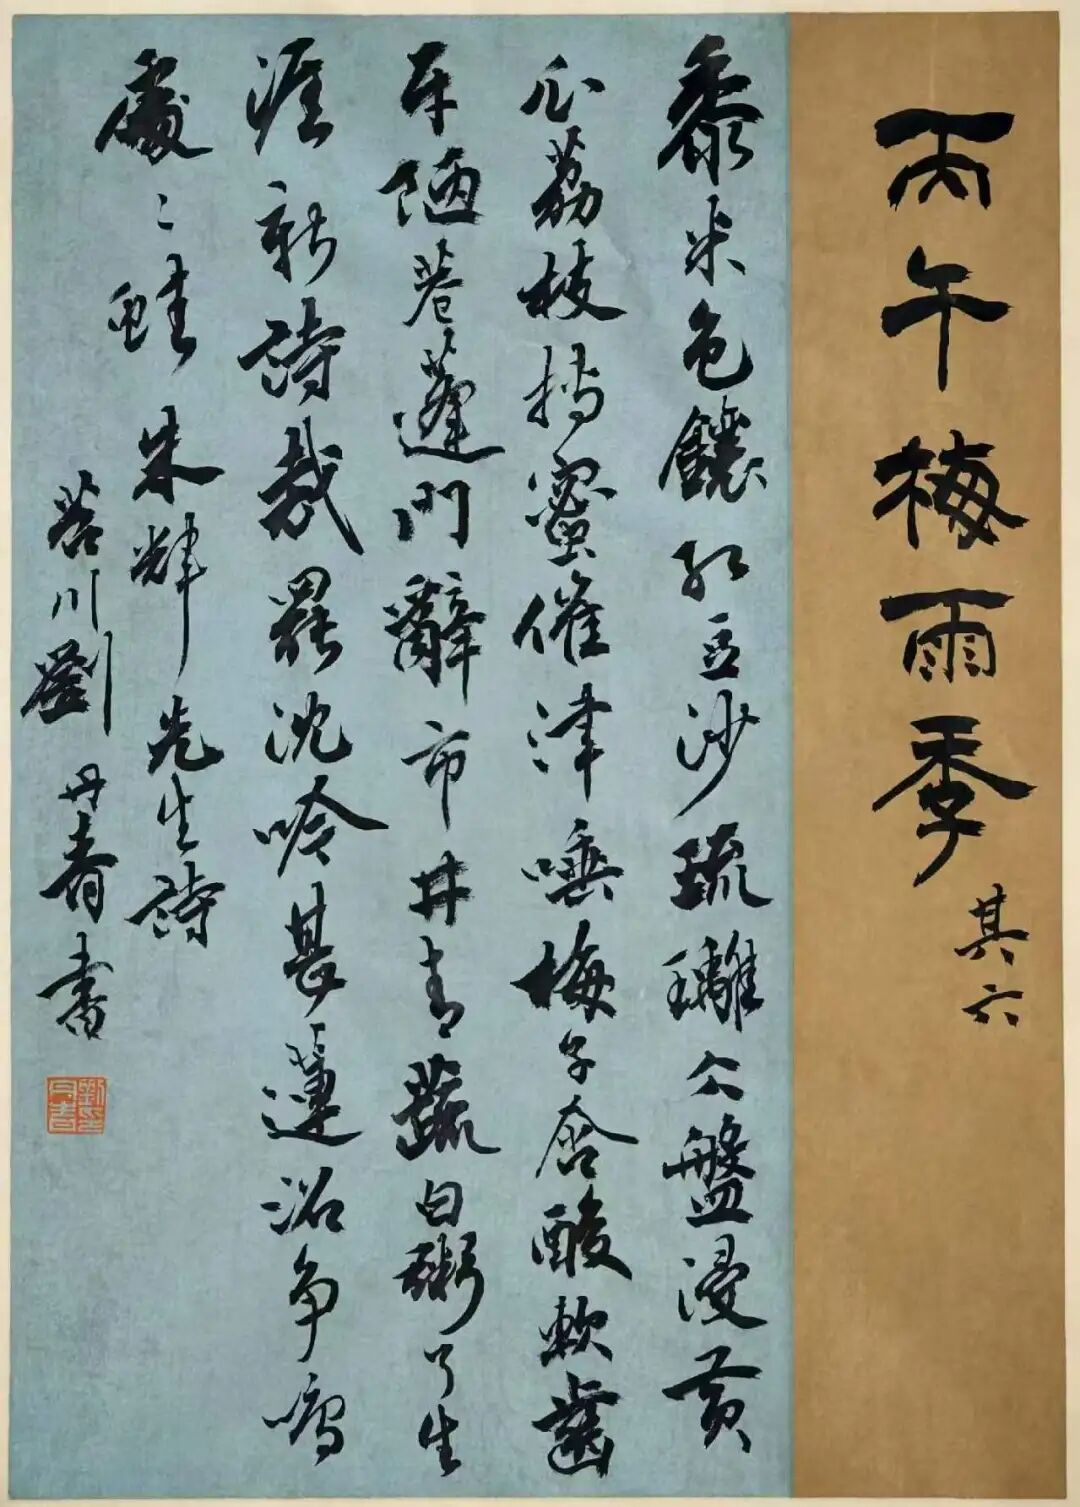 丙午梅雨季
其六
黍米色鑲紅豆沙琉璃仌盤浸黄
瓜荔枝摘蜜催津唾梅子含酸軟齒
牙陋巷蓬門辭市井青蔬白粥了生
涯新詩裁罷沈吟甚蓮沼争鳴
處〻蛙 朱輝先生詩
苕川劉丹青書